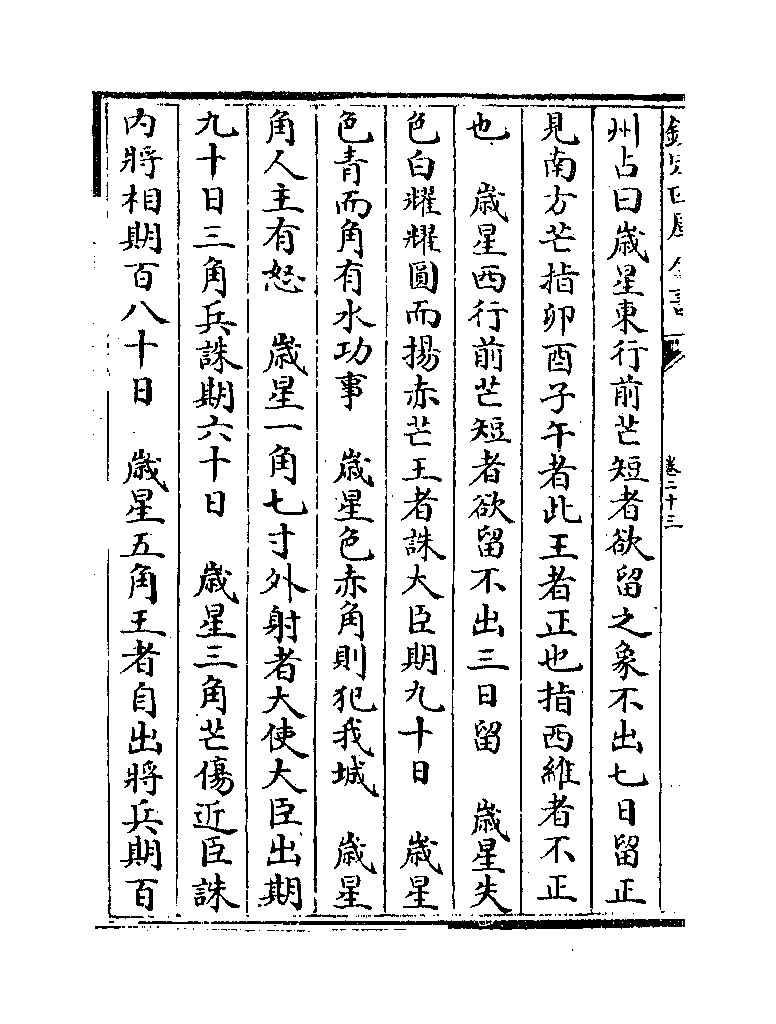 欽定四庫全書
卷二十三
州占曰歳星東行前芒短者欲留之象不出七日留正
見南方芒指卯酉子午者此王者正也指西維者不正
也　歳星西行前芒短者欲留不出三日留　歳星失
色白耀耀圓而揚赤芒王者誅大臣期九十日　歳星
色青而角有水功事　歳星色赤角則犯我城　歳星
角人主有怒　歳星一角七寸外射者大使大臣出期
九十日三角兵誅期六十日　歳星三角芒傷近臣誅
内將相期百八十日　歳星五角王者自出將兵期百